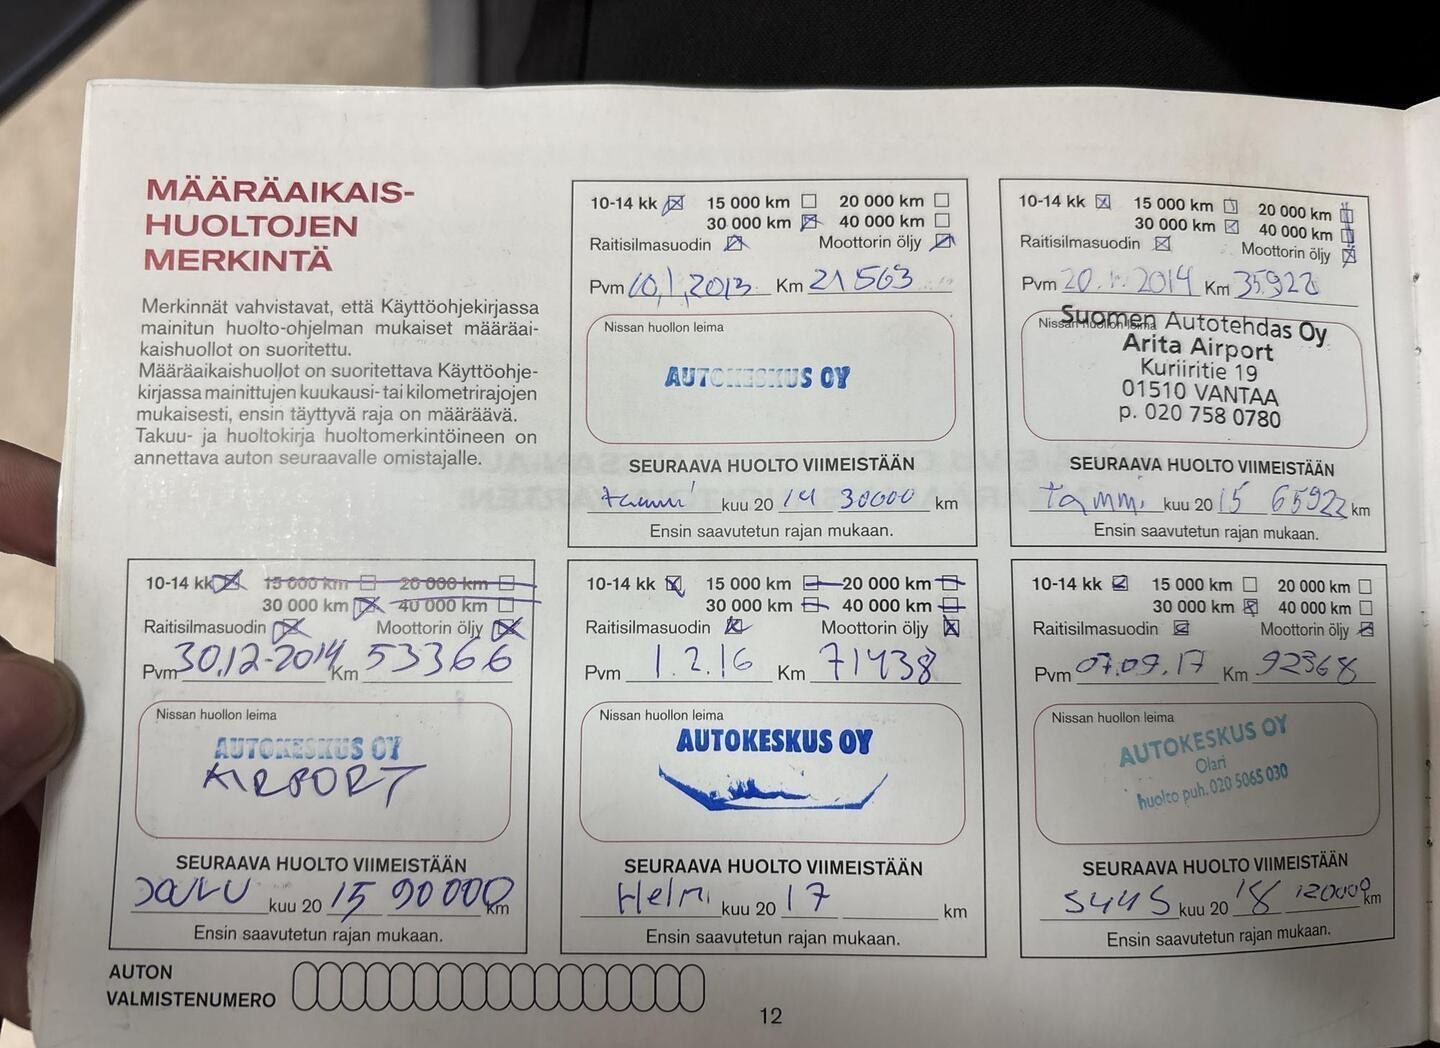 MÄÄRÄAIKAIS-
HUOLTOJEN
MERKINTÄ
Merkinnät vahvistavat, että Käyttöohjekirjassa
mainitun huolto-ohjelman mukaiset määräai-
kaishuollot on suoritettu.
Määräaikaishuollot on suoritettava Käyttöohje-
kirjassa mainittujen kuukausi- tai kilometrirajojen
mukaisesti, ensin täyttyvä raja on määräävä.
Takuu- ja huoltokirja huoltomerkintöineen on
annettava auton seuraavalle omistajalle.
10-14 kk 15 000 km 20 000 km
30 000 km 40 000 km
Raitisilmasuodin Moottorin öljy
Pvm 10,1,2013 Km 21563
Nissan huollon leima
AUTOKESKUS OY
SEURAAVA HUOLTO VIIMEISTÄÄN
tammi kuu 20 14 30000 km
Ensin saavutetun rajan mukaan.
10-14 kk 15 000 km 20 000 km
30 000 km 40 000 km
Raitisilmasuodin Moottorin öljy
Pvm 20.1.2014 Km 35922
Nissan huollon leima
Suomen Autotehdas Oy
Arita Airport
Kuriiritie 19
01510 VANTAA
p. 020 758 0780
SEURAAVA HUOLTO VIIMEISTÄÄN
tammi kuu 20 15 65922 km
Ensin saavutetun rajan mukaan.
10-14 kk 15 000 km 20 000 km
30 000 km 40 000 km
Raitisilmasuodin Moottorin öljy
Pvm 30.12-2014 Km 53366
Nissan huollon leima
AUTOKESKUS OY
AIRPORT
SEURAAVA HUOLTO VIIMEISTÄÄN
JOULU kuu 20 15 90000 km
Ensin saavutetun rajan mukaan.
10-14 kk 15 000 km 20 000 km
30 000 km 40 000 km
Raitisilmasuodin Moottorin öljy
Pvm 1.2.16 Km 71438
Nissan huollon leima
AUTOKESKUS OY
SEURAAVA HUOLTO VIIMEISTÄÄN
Helmi kuu 20 17 km
Ensin saavutetun rajan mukaan.
10-14 kk 15 000 km 20 000 km
30 000 km 40 000 km
Raitisilmasuodin Moottorin öljy
Pvm 07.09.17 Km 92368
Nissan huollon leima
AUTOKESKUS OY
Olari
huolto puh. 020 5065 030
SEURAAVA HUOLTO VIIMEISTÄÄN
SYYS kuu 20 18 120000 km
Ensin saavutetun rajan mukaan.
AUTON
VALMISTENUMERO
12